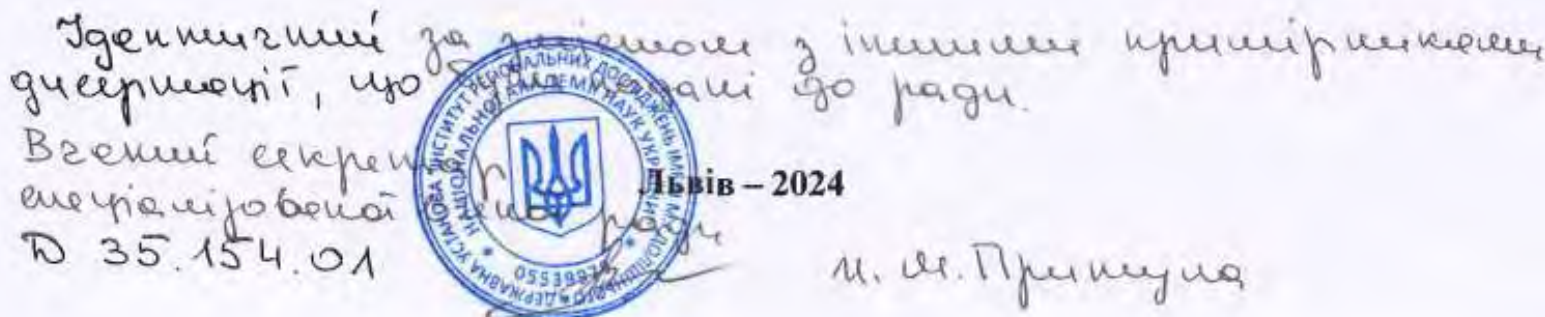 Ідентичний за змістом з іншими примірниками
дисертації, що були подані до ради.
Вчений секретар
спеціалізованої вченої ради
Д 35.154.01
Львів – 2024
Притула
ДЕРЖАВНА УСТАНОВА "ІНСТИТУТ РЕГІОНАЛЬНИХ ДОСЛІДЖЕНЬ ІМЕНІ М.І. ДОЛІШНЬОГО
НАЦІОНАЛЬНОЇ АКАДЕМІЇ НАУК УКРАЇНИ